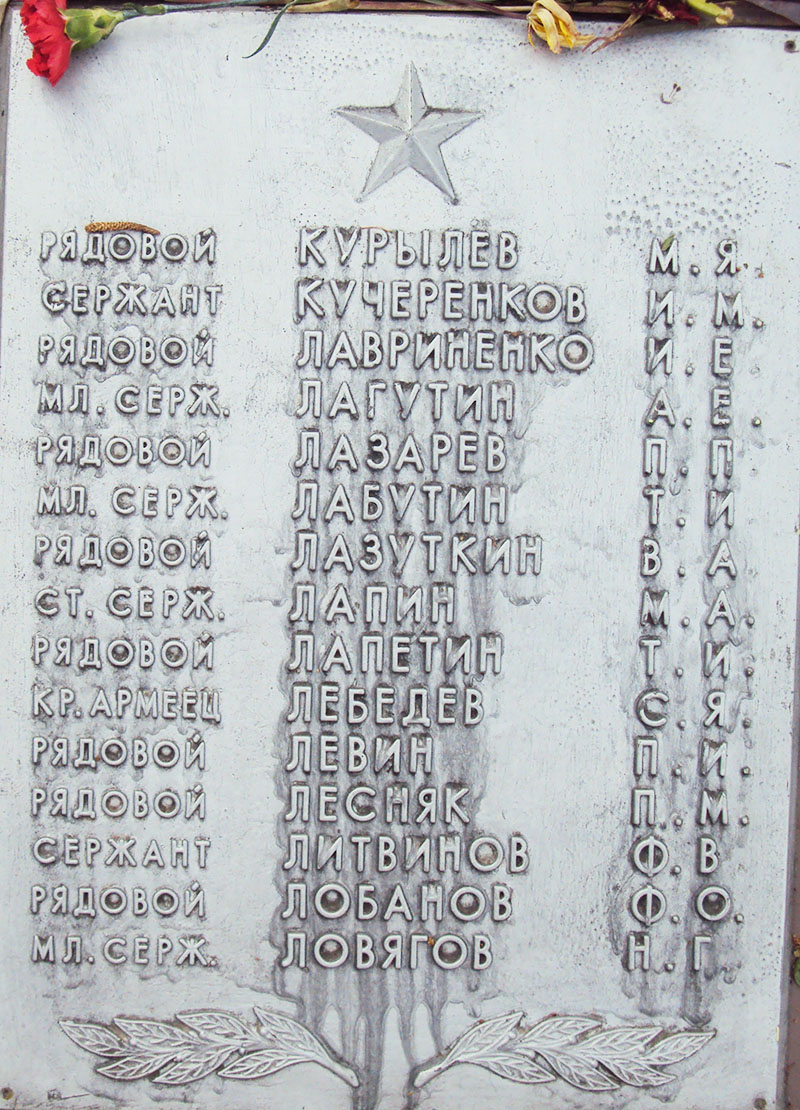 РЯДОВОЙ КУРЫЛЕВ М. Я.
СЕРЖАНТ КУЧЕРЕНКОВ И. М.
РЯДОВОЙ ЛАВРИНЕНКО И. Е
МЛ. СЕРЖ. ЛАГУТИН А. Е.
РЯДОВОЙ ЛАЗАРЕВ П. П
МЛ. СЕРЖ. ЛАБУТИН Т. И
РЯДОВОЙ ЛАЗУТКИН В. А
СТ. СЕРЖ. ЛАПИН М. А.
РЯДОВОЙ ЛАПЕТИН Т. И.
КР. АРМЕЕЦ ЛЕБЕДЕВ С. Я.
РЯДОВОЙ ЛЕВИН П. И.
РЯДОВОЙ ЛЕСНЯК П. М.
СЕРЖАНТ ЛИТВИНОВ Ф. В
РЯДОВОЙ ЛОБАНОВ Ф. О.
МЛ. СЕРЖ. ЛОВЯГОВ Н. Г